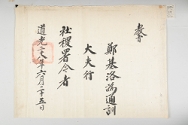 教旨
鄭基洛爲通訓
大夫行
社稷署令者
道光
年六月二十五日